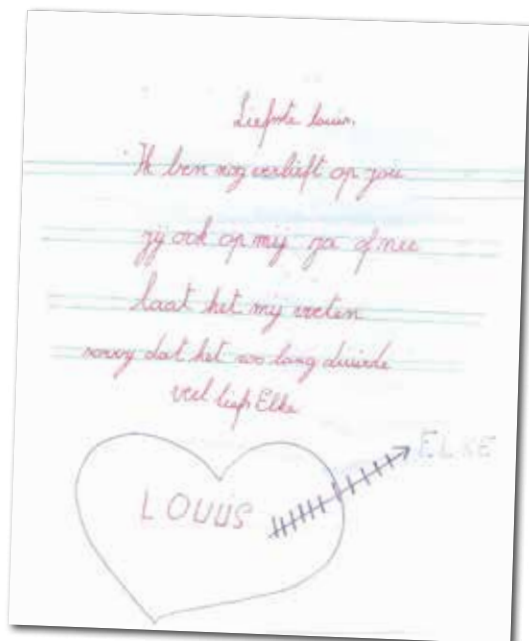 Liefste louis.
Ik ben nog verlieft op jou
jij ook op mij ja of nee
laat het mij weten
sorry dat het zoo lang duurde
veel liefs Elke
ELKE
LOUIS